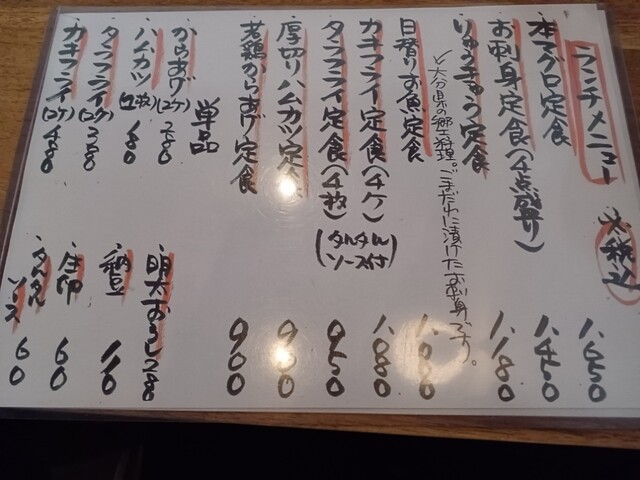 ランチメニュー
※税込
本マグロ定食 1,650
お刺身定食(4点盛り) 1,450
りゅうきゅう定食 1,180
↳大分県の郷土料理。ごまだれに漬けたお刺身です。
日替りお魚定食
カキフライ定食(4ケ) 1,080
タラフライ定食(4枚) 950
(タルタルソース付)
厚切りハムカツ定食 900
若鶏からあげ定食 900
単品
からあげ(2ケ) 280
ハムカツ(2枚) 180
タラフライ(2ケ) 380
カキフライ(2ケ) 480
明太おろし 280
納豆 110
生卵 60
タルタルソース 60